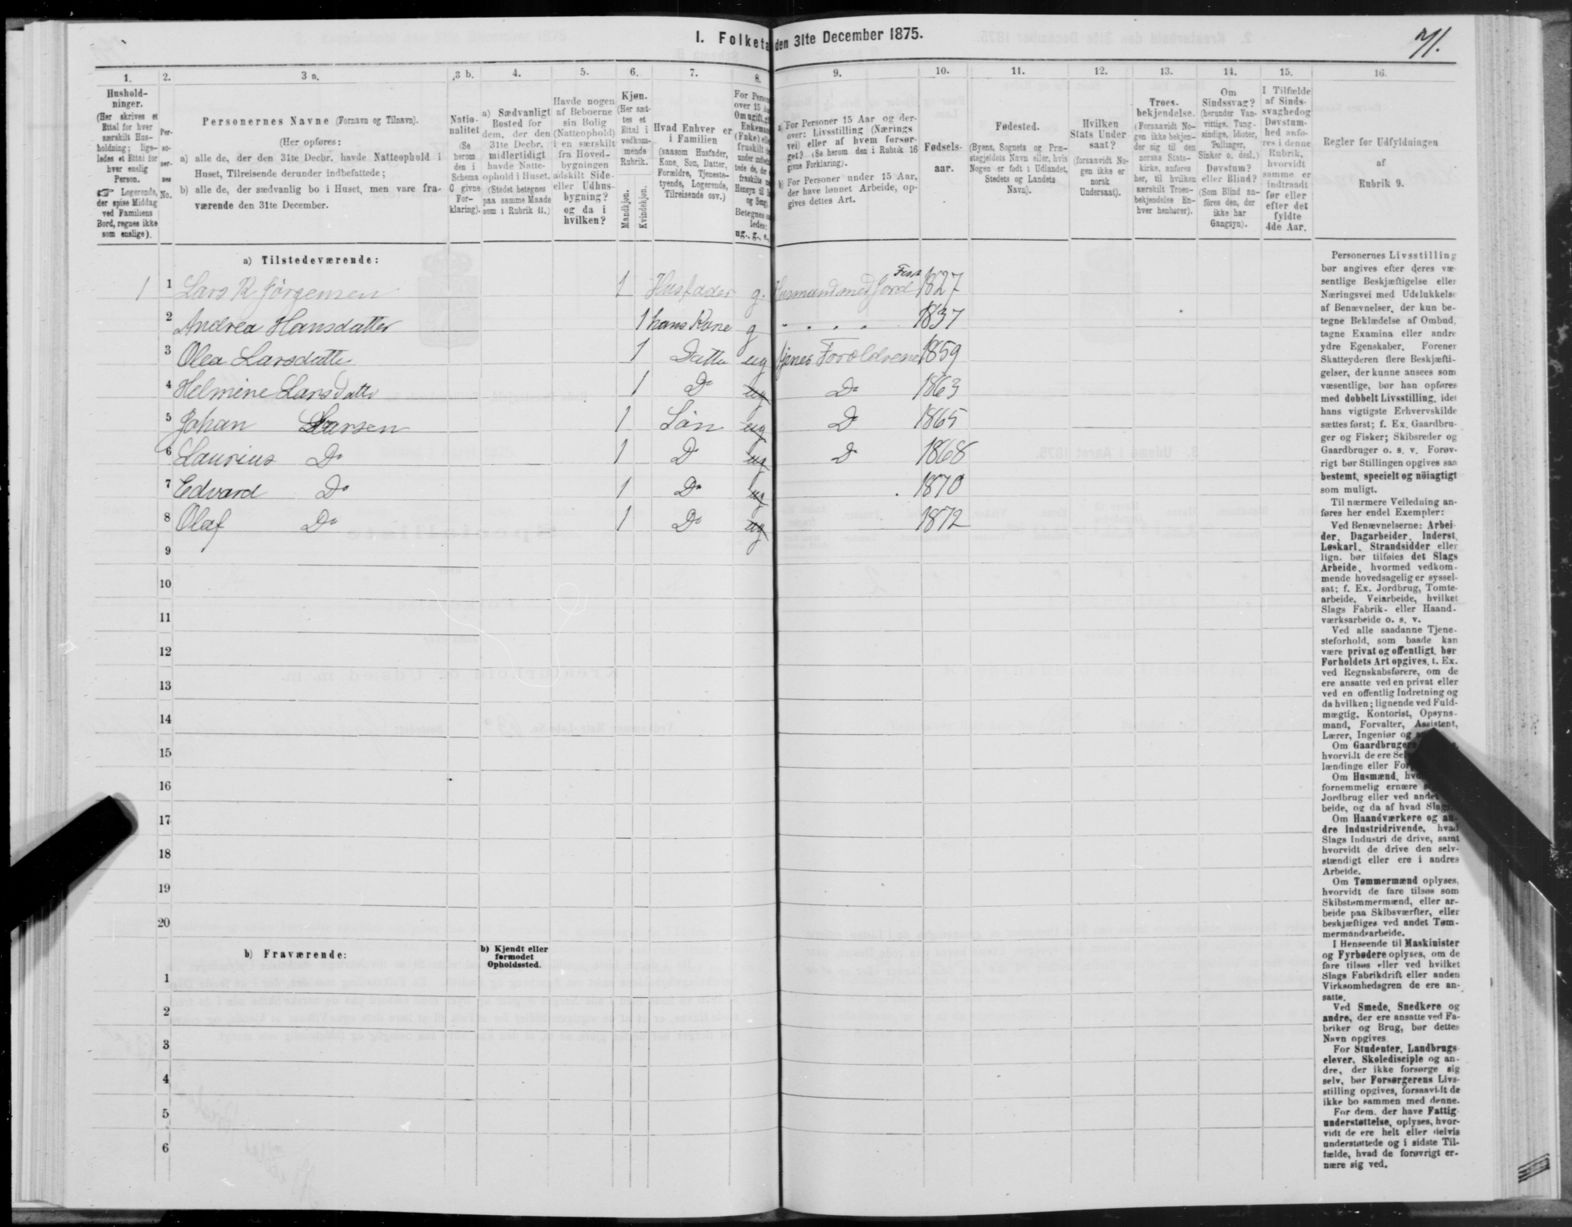 I. Folketæ
den 31te December 1875.
71.
1.
2.
3 a.
3 b.
4.
5.
6.
7.
8.
9.
10.
11.
12.
13.
14.
15.
16.
Hushold-
ninger.
(Her skrives et
Ettal for hver
særskilt Hus-
holdning; lige-
ledes et Ettal for
hver enslig
Person.
☞ Logerende,
der spise Middag
ved Familiens
Bord, regnes ikke
som enslige).
Per-
so-
ner-
nes
No.
Personernes Navne (Fornavn og Tilnavn).
(Her opføres:
a) alle de, der den 31te Decbr. havde Natteophold i
Huset, Tilreisende derunder indbefattede;
b) alle de, der sædvanlig bo i Huset, men vare fra-
værende den 31te December.
Natio-
nalitet
(Se
herom
den i
Schema
C givne
For-
klaring).
a) Sædvanligt
Bosted for
dem, der den
31te Decbr.
midlertidigt
havde Natte-
ophold i Huset.
(Stedet betegnes
paa samme Maade
som i Rubrik 11.)
Havde nogen
af Beboerne
sin Bolig
(Natteophold)
i en særskilt
fra Hoved-
bygningen
adskilt Side-
eller Udhus-
bygning?
og da i
hvilken?
Kjøn.
(Her sæt-
tes et
Ettal i
vedkom-
mende
Rubrik.
Mandkjøn.
Kvindekjøn.
Hvad Enhver er
i Familien
(saasom Husfader,
Kone, Søn, Datter,
Forældre, Tjeneste-
tyende, Logerende,
Tilreisende osv.)
For Person
over 15
Om ugift,
Enkemand
(Enke) eller
fraskilt
Betegnes
ledes:
ug., g., e.,
a) For Personer 15 Aar og der-
over: Livsstilling (Nærings
vei) eller af hvem forsør-
get? (Se herom den i Rubrik 16
givne Forklaring).
b) For Personer under 15 Aar,
der have lønnet Arbeide, op-
gives dettes Art.
Fødsels-
aar.
Fødested.
(Byens, Sognets og Præ-
stegjeldets Navn eller, hvis
Nogen er født i Udlandet,
Stedets og Landets
Navn).
Hvilken
Stats Under
saat?
(forsaavidt No-
gen ikke er
norsk
Undersaat).
Troes-
bekjendelse.
(Forsaavidt No-
gen ikke bekjen-
der sig til den
norske Stats-
kirke, anføres
her, til hvilken
særskilt Troes-
bekjendelse En-
hver henhører).
Om
Sindssvag?
(herunder Van-
vittige, Tung-
sindige, Idioter,
Tullinger,
Sinker o. desl.)
Døvstum?
eller Blind?
(Som Blind an-
føres den, der
ikke har
Gangsyn).
I Tilfælde
af Sinds-
svaghedog
Døvstum-
hed anfø-
res i denne
Rubrik,
hvorvidt
samme er
indtraadt
før eller
efter det
fyldte
4de Aar.
Regler før Udfyldningen
af
Rubrik 9.
a) Tilstedeværende:
1 1 Lars K Jørgensen 1 Husfader g. Husmand med Jord Fisk 1827
2 Andrea Hansdatter 1 hans Kone g . . . . 1837
3 Olea Larsdatter 1 Datter ug Forældrene 1859
4 Helmine Larsdatter 1 Do ug Do 1863
5 Johan Larsen 1 Søn ug D 1865
6 Laurius Do 1 D ug Do 1868
7 Edvard Do 1 Do ug 1870
8 Olaf Do 1 Do ug 1872
9
10
11
12
13
14
15
16
17
18
19
20
b) Fraværende:
b) Kjendt eller
formodet
Opholdssted.
1
2
3
4
5
6
Personernes Livsstilling
bør angives efter deres væ-
sentlige Beskjæftigelse eller
Næringsvei med Udelukkelse
af Benævnelser, der kun be-
tegne Beklædelse af Ombud,
tagne Examina eller andre
ydre Egenskaber. Forener
Skatteyderen flere Beskjæfti-
gelser, der kunne ansees som
væsentlige, bør han opføres
med dobbelt Livsstilling, idet
hans vigtigste Erhvervskilde
sættes først; f. Ex. Gaardbru-
ger og Fisker; Skibsreder og
Gaardbruger o. s. v. Forøv-
rigt bør Stillingen opgives saa
bestemt, specielt og nøiagtigt
som muligt.
Til nærmere Veiledning an-
føres her endel Exempler:
Ved Benævnelserne: Arbei-
der, Dagarbeider, Inderst,
Løskarl, Strandsidder eller
lign. bør tilføies det Slags
Arbeide, hvormed vedkom-
mende hovedsagelig er syssel-
sat; f. Ex. Jordbrug, Tomte-
arbeide, Veiarbeide, hvilket
Slags Fabrik- eller Haand-
værksarbeide o. s. v.
Ved alle saadanne Tjene-
steforhold, som baade kan
være privat og offentligt, bør
Forholdets Art opgives, t. Ex.
ved Regnskabsførere, om de
ere ansatte ved en privat eller
ved en offentlig Indretning og
da hvilken; lignende ved Fuld-
mægtig, Kontorist, Opsyns-
mand, Forvalter, Assistent,
Lærer, Ingeniør og
Om Gaardbrugere
hvorvidt de ere Sel
lændinge eller For
Om Husmænd, hvo
fornemmelig ernære
Jordbrug eller ved andet
beide, og da af hvad Slags.
Om Haandværkere og an-
dre Industridrivende, hvad
Slags Industri de drive, samt
hvorvidt de drive den selv-
stændigt eller ere i andres
Arbeide.
Om Tømmermænd oplyses,
hvorvidt de fare tilsøs som
Skibstømmermænd, eller ar-
beide paa Skibsværfter, eller
beskjæftiges ved andet Tøm-
mermandsarbeide.
I Henseende til Maskinister
og Fyrbødere oplyses, om de
fare tilsøs eller ved hvilket
Slags Fabrikdrift eller anden
Virksomhedsgren de ere an-
satte.
Ved Smede, Snedkere og
andre, der ere ansatte ved Fa-
briker og Brug, bør dettes
Navn opgives
For Studenter, Landbrugs-
elever, Skoledisciple og an-
dre, der ikke forsørge sig
selv, bør Forsørgerens Livs-
stilling opgives, forsaavidt de
ikke bo sammen med denne.
For dem, der have Fattig-
understøttelse, oplyses, hvor-
vidt de ere helt eller delvis
understøttede og i sidste Til-
fælde, hvad de forøvrigt er-
nære sig ved.